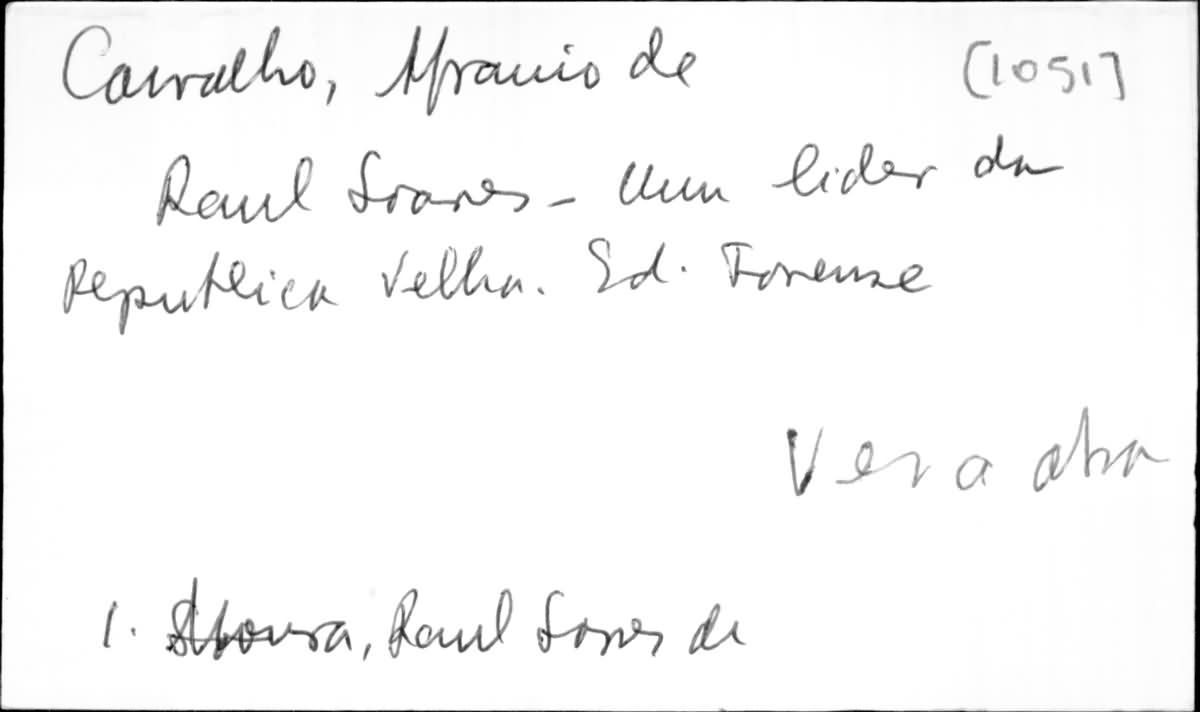 Carvalho, Afranio de [1051]
Raul Soares - Um lider da
Republica Velha. Ed. Forense
Ver a obra
1. Moura, Raul Soares de